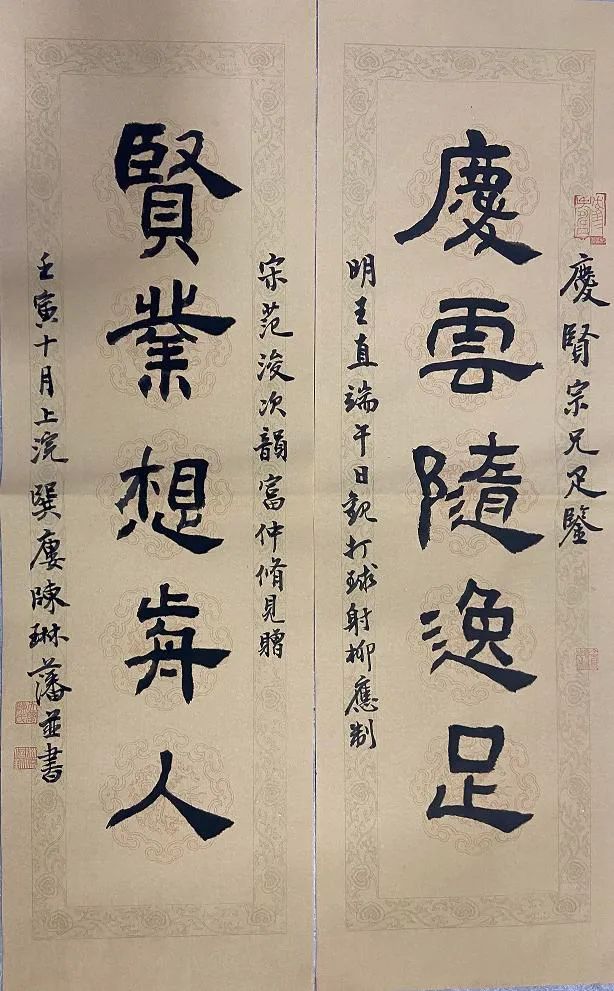 慶賢宗兄足鑒
慶雲隨逸足
明王直端午日觀打球射柳應制
宋范浚次韻富仲脩見贈
賢業想前人
壬寅十月上浣巽廔陳琳藩並書